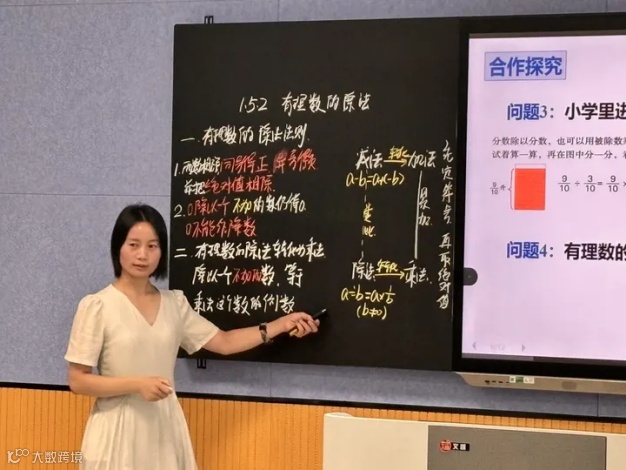 1.5.2 有理数的除法
一.有理数的除法法则.
1.两数相除,同号得正,异号得负
并把绝对值相除.
2.0除以一个不为0的数仍得0.
0不能作除数
二.有理数的除法转化为乘法
除以一个不为0的数,等于
乘这个数的倒数
减法 转化 加法
a-b=a+(-b)
类
比
除法 转化 乘法.
a÷b=a×1/b
(b≠0)
先定符号,再取绝对值
合作探究
问题3:小学里进
分数除以分数,也可以用被除数
试着算一算,再在图中分一分,
9/10
9/10 ÷ 3/10 = 9/10 ×
问题4:有理数的
大数跨境